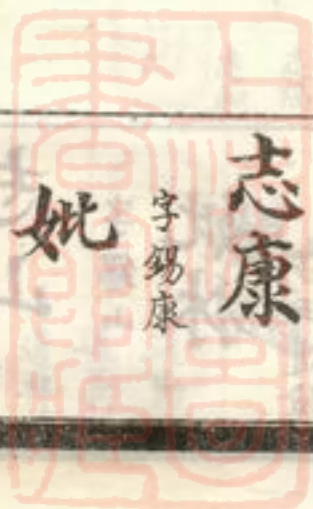 志康
字錫康
妣